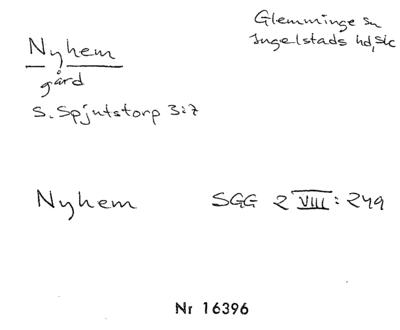 Nyhem
gård
S. Spjutstorp 3:7
Glemminge sn
Ingelstads hd, Sk
Nyhem
SGG 2 VIII: 249
Nr 16396